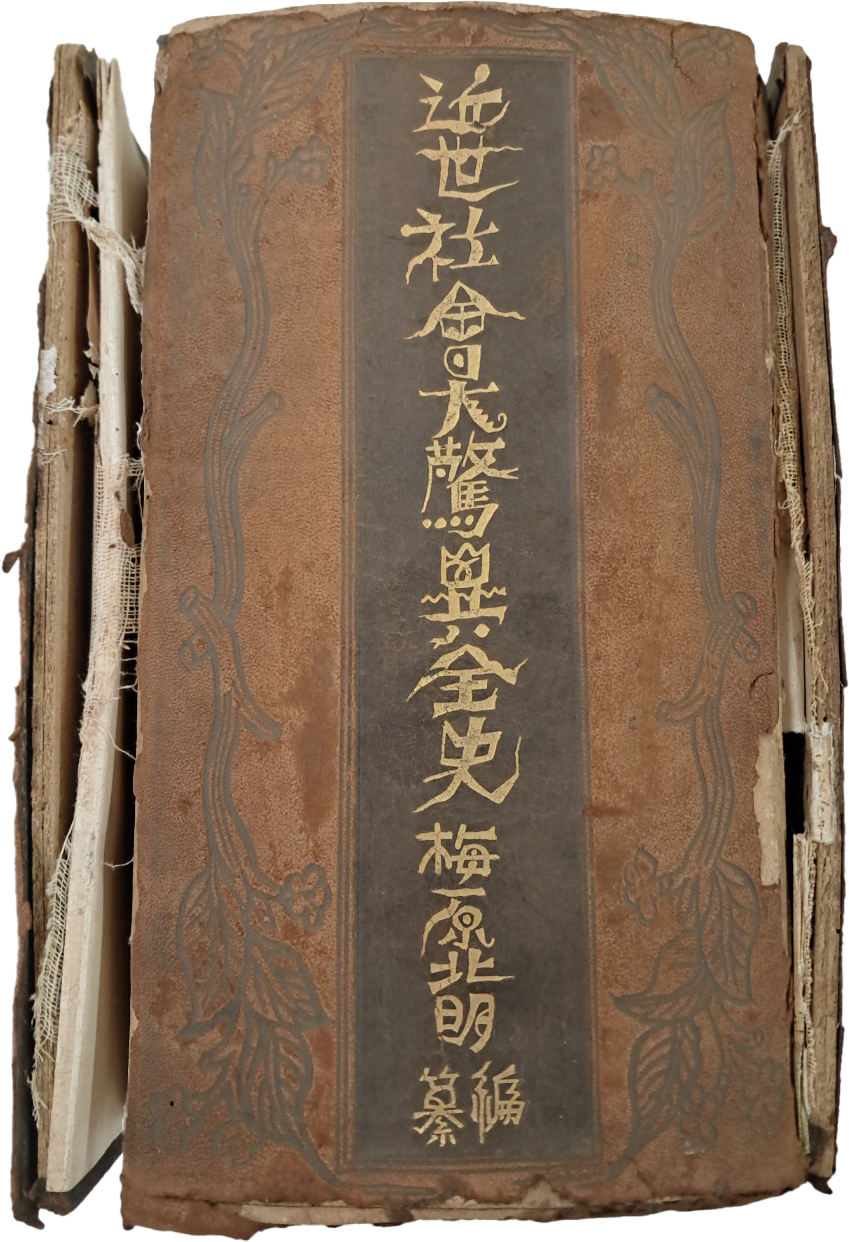 近世社會大驚異全史
梅原北明
編纂